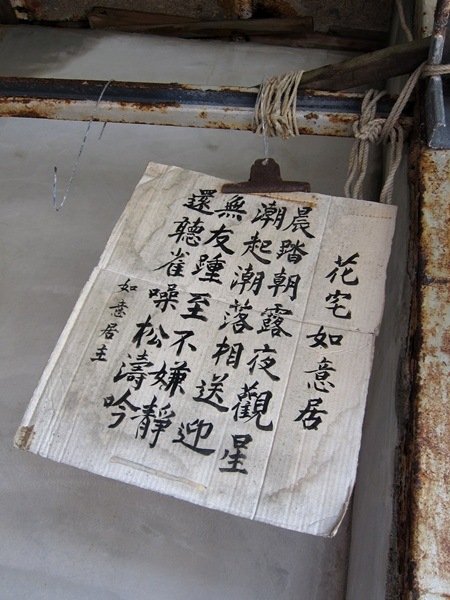 花宅如意居
晨踏朝露夜觀星
潮起潮落相送迎
無友踵至不嫌靜
還聽雀噪松濤吟
如意居主